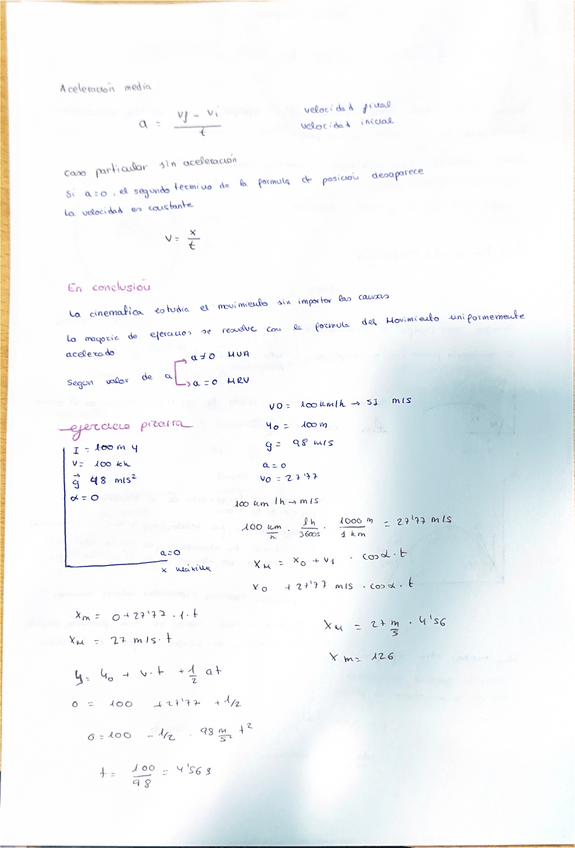 Aceleración media
a = vf - vi / t
velocidad final
velocidad inicial
caso particular sin aceleración
Si a=0, el segundo termino de la formula de posición desaparece
La velocidad es constante
v = x / t
En conclusión
La cinematica estudia el movimiento sin importar las causas
La mayoria de ejercicios se resuelve con la formula del Movimiento uniformemente
acelerado
Segun valor de a
a≠0 MUA
a=0 MRV
ejercicio pizarra
I = 100 m y
v = 100 kh
g 98 m/s²
α = 0
a=0
x
v0 = 100 km/h → SI m/s
y0 = 100 m
g = 98 m/s
a=0
v0 = 27'77
100 km/h → m/s
100 km/h · 1h/3600s · 1000 m/1 km = 27'77 m/s
XM = x0 + v1 · cosα · t
x0 + 27'77 m/s · cosα · t
xm = 0 + 27'77 · 1 · t
XM = 27 m/s · t
y = y0 + v·t + 1/2 at
0 = 100 + 27'77 + 1/2
0 = 100 - 1/2 · 98 m/s² t²
t = 100/98 = 4'563
XM = 27 m/s · 4'56
Xm = 126